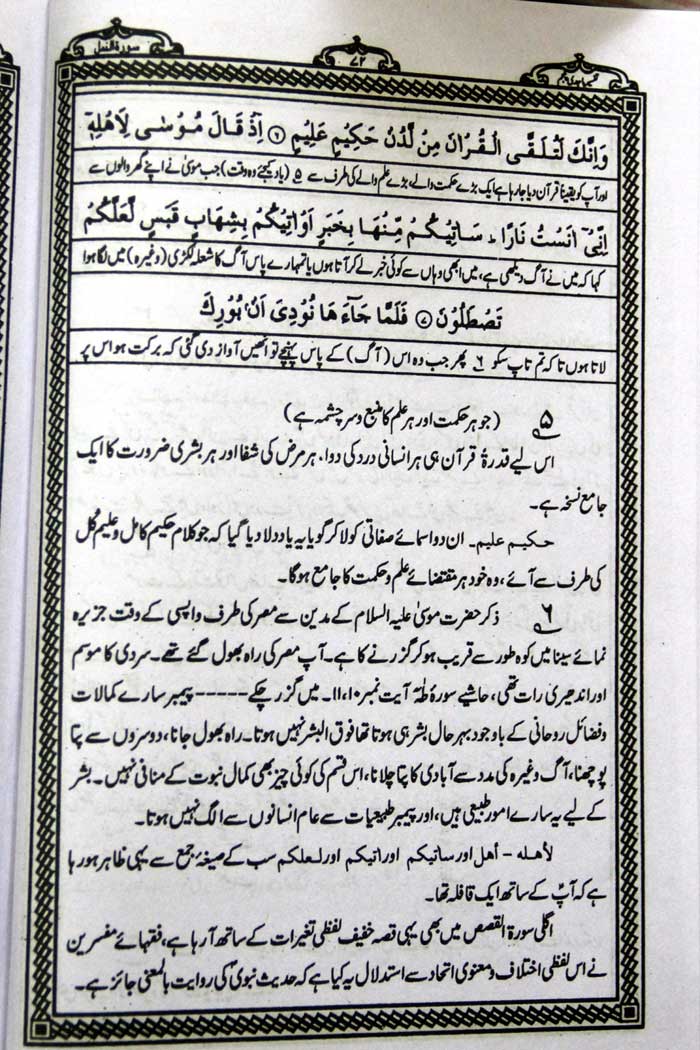 سورۃ النمل ۷۲
وَاِنَّكَ لَتُلَقَّى الْقُرْاٰنَ مِنْ لَّدُنْ حَكِيْمٍ عَلِيْمٍ ﴿۶﴾ اِذْ قَالَ مُوْسٰى لِاَهْلِهٖٓ
اور آپ کو یقیناً قرآن دیا جا رہا ہے ایک بڑے حکمت والے، بڑے علم والے کی طرف سے ۵ (یاد کیجئے وہ وقت) جب موسیٰ نے اپنے گھر والوں سے
اِنِّىْٓ اٰنَسْتُ نَارًا ؕ سَاٰتِيْكُمْ مِّنْهَا بِخَبَرٍ اَوْ اٰتِيْكُمْ بِشِهَابٍ قَبَسٍ لَّعَلَّكُمْ
کہا کہ میں نے آگ دیکھی ہے، میں ابھی وہاں سے کوئی خبر لے کر آتا ہوں یا تمہارے پاس آگ کا شعلہ لکڑی (وغیرہ) میں لگا ہوا
تَصْطَلُوْنَ ﴿۷﴾ فَلَمَّا جَآءَهَا نُوْدِىَ اَنْۢ بُوْرِكَ
لاتا ہوں تا کہ تم تاپ سکو ۶ پھر جب وہ اس (آگ) کے پاس پہنچے تو انھیں آواز دی گئی کہ برکت ہو اس پر
۵ (جو ہر حکمت اور ہر علم کا منبع و سرچشمہ ہے)
اس لیے قدرۃً قرآن ہی ہر انسانی درد کی دوا، ہر مرض کی شفا اور ہر بشری ضرورت کا ایک
جامع نسخہ ہے۔
حکیم علیم۔ ان دو اسمائے صفاتی کو لا کر گویا یہ یاد دلا دیا گیا کہ جو کلام حکیم کامل و علیم کل
کی طرف سے آئے، وہ خود ہر مقتضائے علم و حکمت کا جامع ہوگا۔
۶ ذکر حضرت موسیٰ علیہ السلام کے مدین سے مصر کی طرف واپسی کے وقت جزیرہ
نمائے سینا میں کوہ طور سے قریب ہو کر گزرنے کا ہے۔ آپ مصر کی راہ بھول گئے تھے۔ سردی کا موسم
اور اندھیری رات تھی، حاشیے سورۂ طٰہٰ آیت نمبر ۱۰،۱۱۔ میں گزر چکے ----- پیمبر سارے کمالات
و فضائل روحانی کے باوجود بہرحال بشر ہی ہوتا تھا فوق البشر نہیں ہوتا۔ راہ بھول جانا، دوسروں سے پتا
پوچھنا، آگ وغیرہ کی مدد سے آبادی کا پتا چلانا، اس قسم کی کوئی چیز بھی کمال نبوت کے منافی نہیں۔ بشر
کے لیے یہ سارے امور طبیعی ہیں، اور پیمبر طبعیات سے عام انسانوں سے الگ نہیں ہوتا۔
لأهله - أهل اور ساتیکم اور اتیکم اور لعلکم سب کے صیغۂ جمع سے یہی ظاہر ہو رہا
ہے کہ آپؑ کے ساتھ ایک قافلہ تھا۔
اگلی سورۃ القصص میں بھی یہی قصہ خفیف لفظی تغیرات کے ساتھ آ رہا ہے، فقہائے مفسرین
نے اس لفظی اختلاف و معنوی اتحاد سے استدلال یہ کیا ہے کہ حدیث نبویؐ کی روایت بالمعنی جائز ہے۔